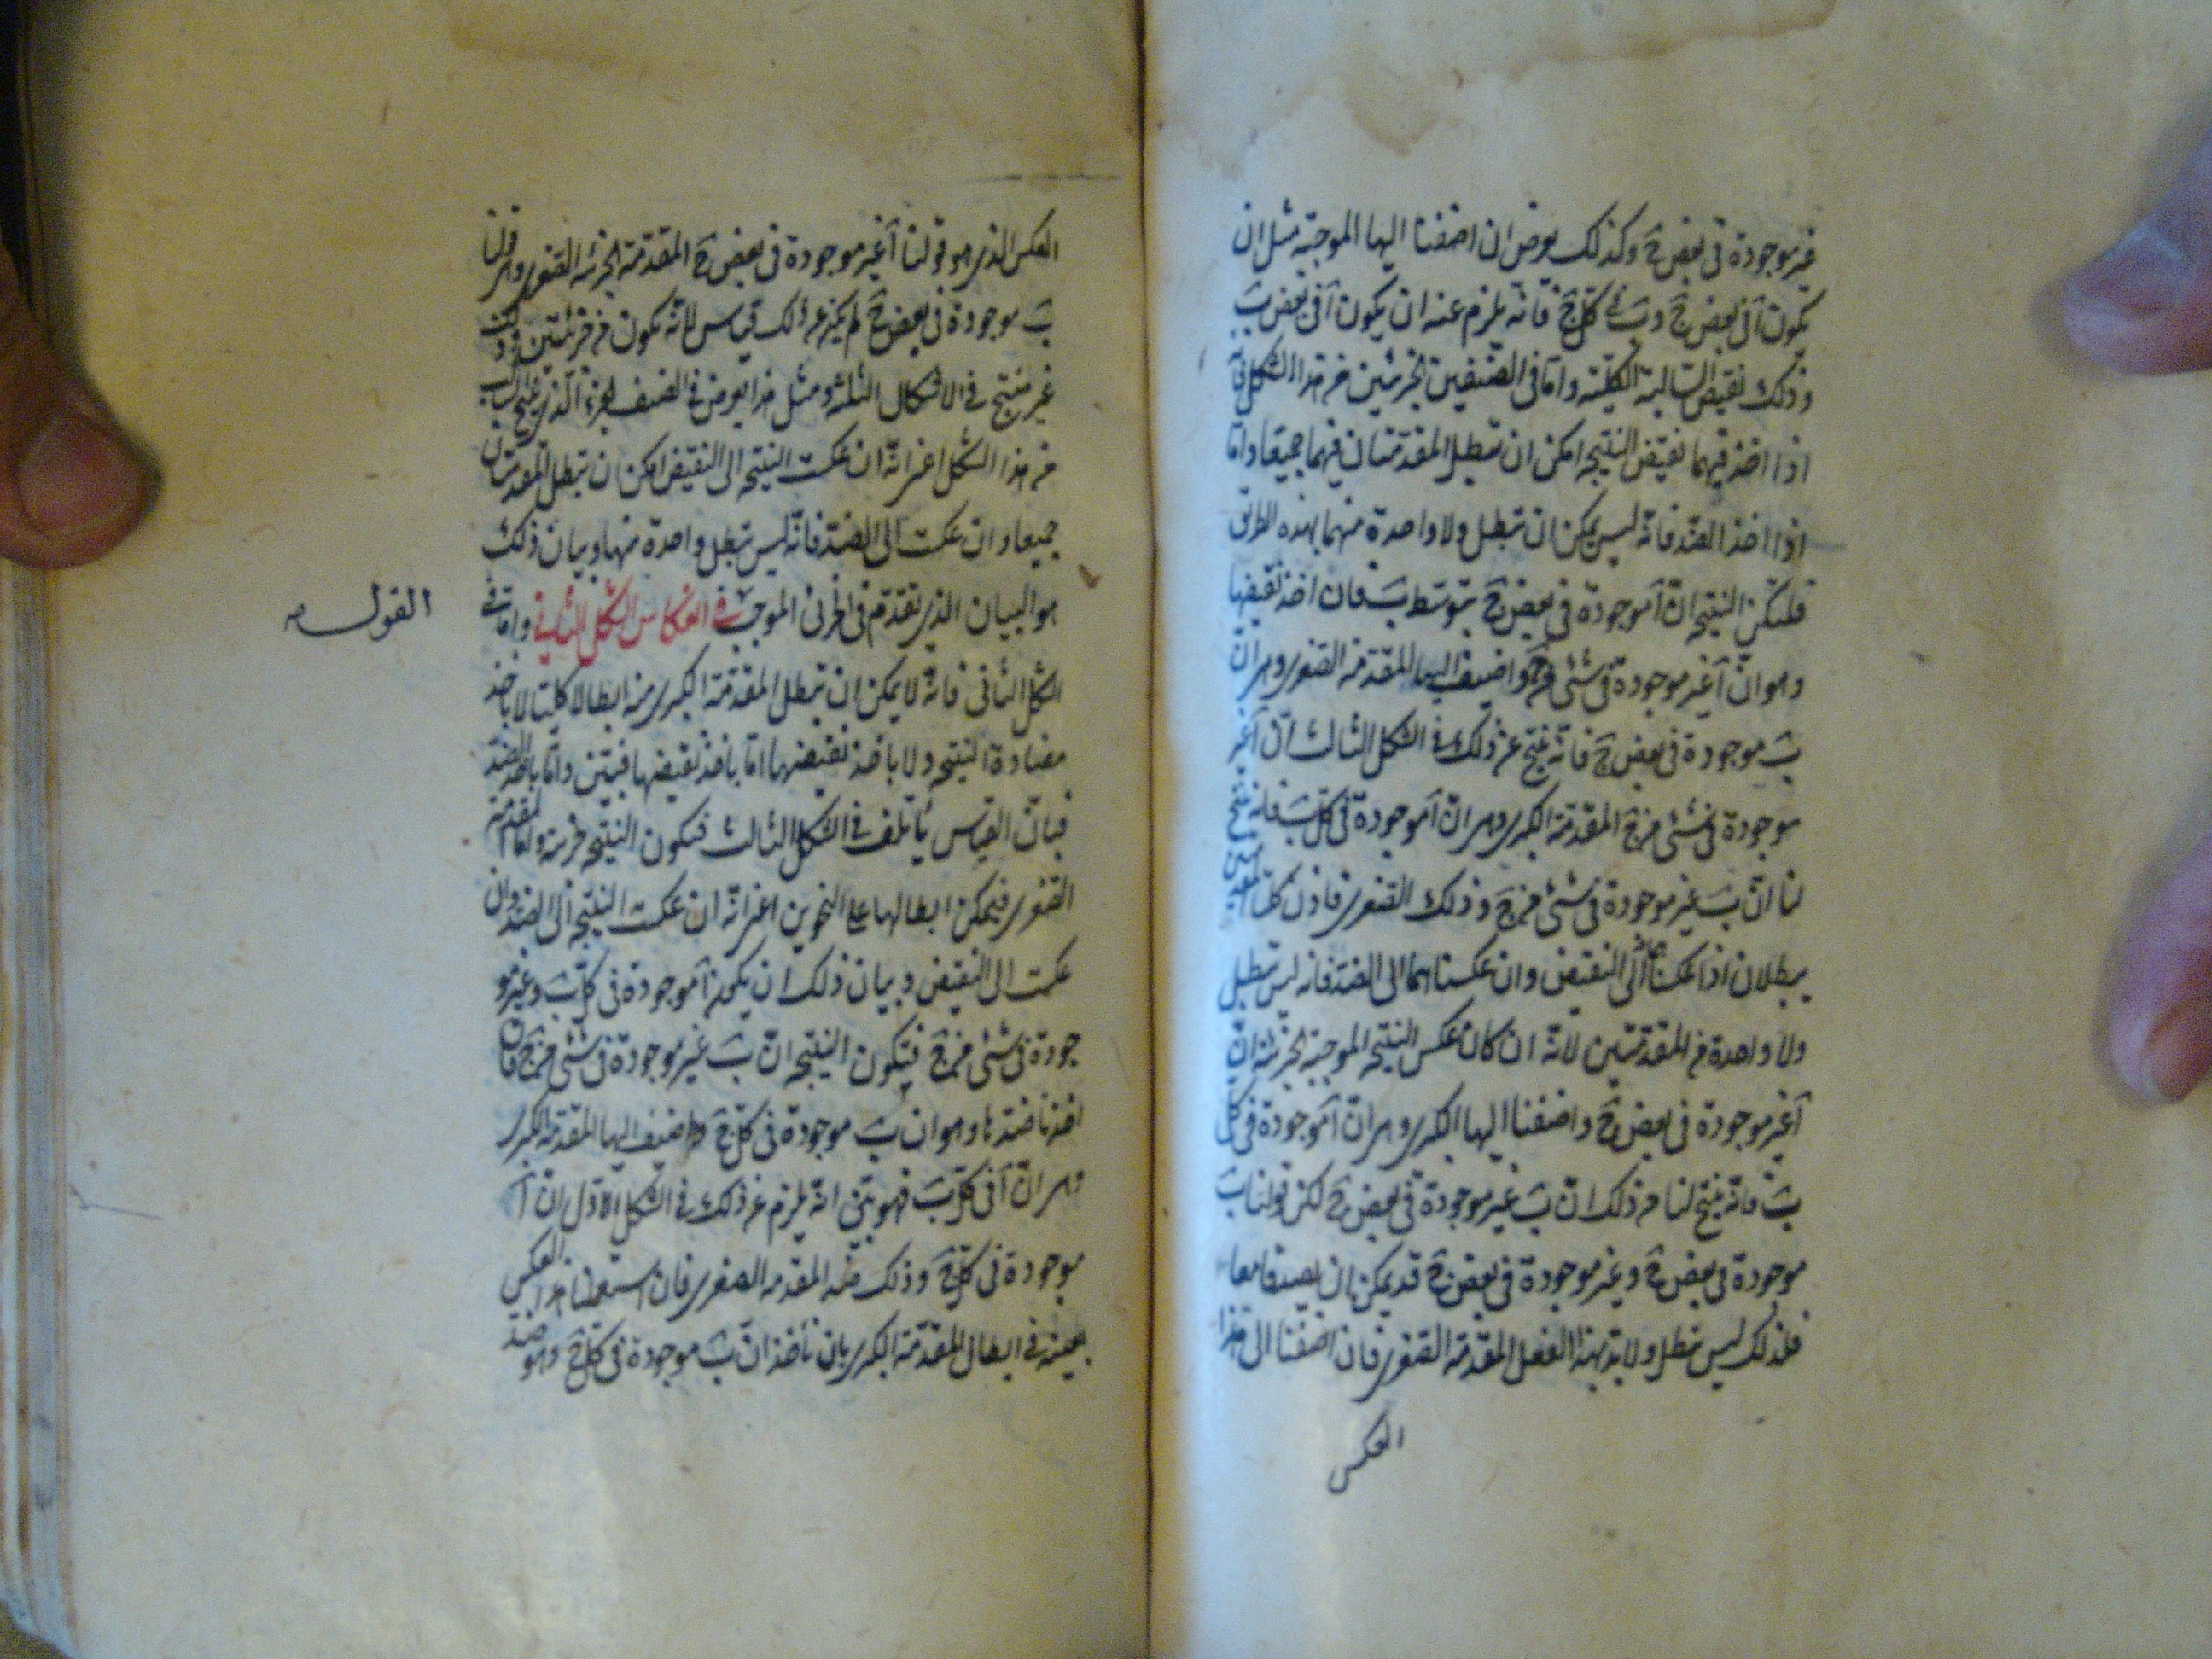 غير موجودة فى بعض ج وكذلك يعرض ان اضفنا اليها الموجبة مثل ان
يكون آ فى بعض ج وب فى كل ج فانه يلزم عنه ان يكون آ فى بعض ب
وذلك نقيض السالبة الكلية واما فى الصنفين الجزئيين من هذا الشكل فانه
اذا اخذ فيهما نقيض النتيجه امكن ان تبطل المقدمتان فيهما جميعا واما
اذا اخذ الضد فانه ليس يمكن ان تبطل ولا واحدة منهما بهذه الطريق
فلتكن النتيجه ان آ موجودة فى بعض ج بتوسط ب فان اخذ نقيضها
وهو ان آ غير موجودة فى شئ من ج واضيف اليها المقدمة الصغرى وهى ان
ب موجودة فى بعض ج فانه ينتج عن ذلك فى الشكل الثالث ان آ غير
موجودة فى شئ من ج المقدمة الكبرى وهى ان آ موجودة فى كل ب فانه ينتج
لنا ان ب غير موجودة فى شئ من ج وذلك الصغرى فاذن كلتا المقدمتين
يبطلان اذا عكسناهما الى النقيض وان عكسناهما الى الضد فانه ليس تبطل
ولا واحدة من المقدمتين لانه ان كان عكس النتيجه الموجبة الجزئية ان
آ غير موجودة فى بعض ج واضفنا اليها الكبرى وهى ان آ موجودة فى كل
ب فانه ينتج لنا من ذلك ان ب غير موجودة فى بعض ج لكن قولنا ب
موجودة فى بعض ج وغير موجودة فى بعض ج قد يمكن ان يصدقا معا
فلذلك ليس تبطل ولا بد بهذا الفعل المقدمة الصغرى فان اضفنا الى هذا
العكس
العكس الذى هو قولنا آ غير موجودة فى بعض ج المقدمة الجزئية الصغرى وهى قولنا
ب موجودة فى بعض ج لم يكن عن ذلك قياس لانه يكون من جزئيتين وذلك
غير منتج فى الاشكال الثلثة ومثل هذا يعرض فى الصنف الجزئى الذى ينتج السالب
من هذا الشكل اعنى انه ان عكست النتيجه الى النقيض امكن ان تبطل المقدمتان
جميعا وان عكست الى الضد فانه ليس تبطل واحدة منها وبيان ذلك
هو البيان الذى تقدم فى الجزئى الموجب فى انعكاس الشكل الثانى واما فى
القول
الشكل الثانى فانه لا يمكن ان تبطل المقدمة الكبرى منه ابطالا كليا لا باخذ
مضادة النتيجه ولا باخذ نقيضها اما باخذ نقيضها فبيّن واما باخذ الضد
فبان القياس يأتلف فى الشكل الثالث فتكون النتيجه جزئية واما المقدمة
الصغرى فيمكن ابطالها على النحوين اعنى انه ان عكست النتيجه الى الضد وان
عكست الى النقيض وبيان ذلك ان يكون آ موجودة فى كل ب وغير مو
جودة فى شئ من ج فتكون النتيجه ان ب غير موجودة فى شئ من ج فان
اخذنا ضدها وهو ان ب موجودة فى كل ج واضيف اليها المقدمة الكبرى
وهى ان آ فى كل ب فهو بيّن انه يلزم عن ذلك فى الشكل الاول ان آ
موجودة فى كل ج وذلك ضد المقدمة الصغرى فان استعملنا هذا العكس
بعينه فى ابطال المقدمة الكبرى بان نأخذ ان ب موجودة فى كل ج وهو ضد